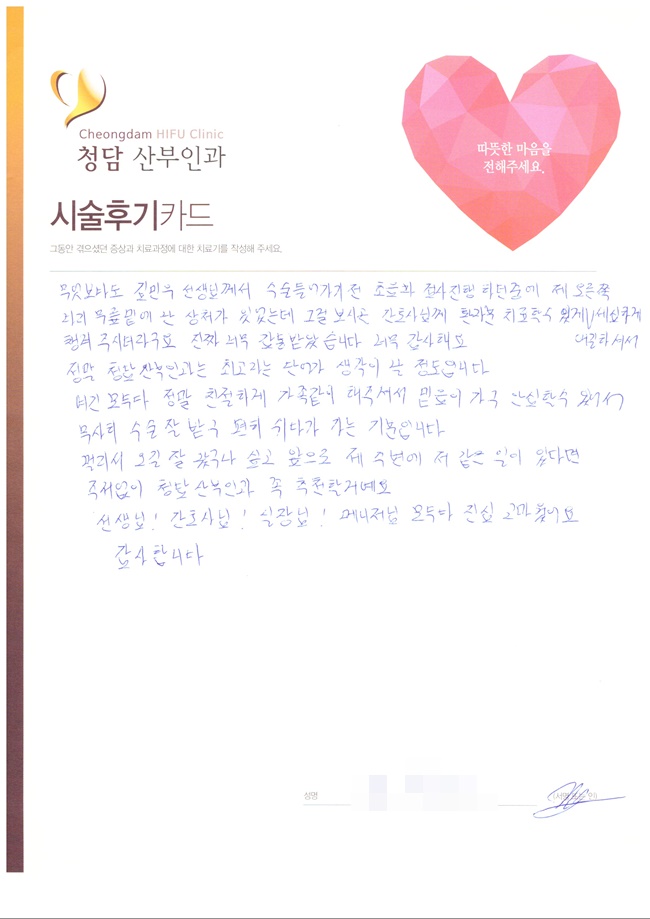 Cheongdam HIFU Clinic
청담 산부인과
따뜻한 마음을
전해주세요.
시술후기카드
그동안 겪으셨던 증상과 치료과정에 대한 치료기를 작성해 주세요.
무엇보다도 김민우 선생님께서 수술들어가기전 초음파 검사진행하던중에 제 오른쪽
무릎밑에 난 상처가 있었는데 그걸 보시곤 간호사님께 치료할수 있게 세심하게
행겨 주시더라구요 진짜 너무 감동받았습니다 너무 감사해요
정말 청담산부인과는 최고라는 단어가 생각이 날 정도입니다
여긴 모두다 정말 친절하게 가족같이 대해주셔서 믿음이 가고 안심할수 있어서
무사히 수술 잘 받고 편히 쉬다가 가는 기분입니다
멀리서 오길 잘 왔구나 싶고 앞으로 제 주변에 저 같은 일이 있다면
주저없이 청담산부인과 꼭 추천할거예요
선생님! 간호사님! 실장님! 매니저님 모두다 진심 고마웠어요
감사합니다
성명